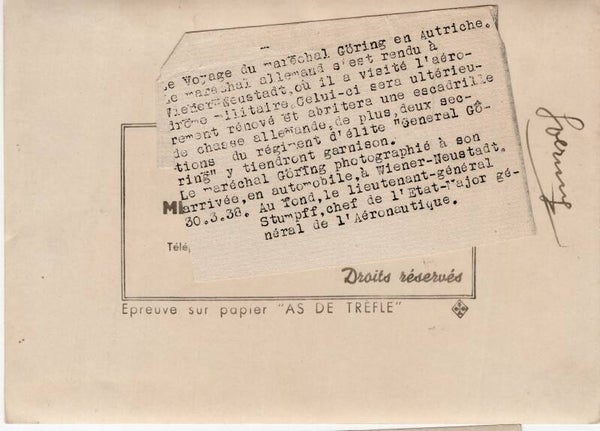 Le Voyage du maréchal Göring en Autriche.
Le maréchal allemand s'est rendu à
Wiener-Neustadt, où il a visité l'aéro-
drôme militaire. Celui-ci sera ultérieu-
rement rénové et abritera une escadrille
de chasse allemande, de plus, deux sec-
tions du régiment d'élite "General Gö-
ring" y tiendront garnison.
Le maréchal Göring photographié à son
arrivée, en automobile, à Wiener-Neustadt.
30.3.38. Au fond, le lieutenant-général
Stumpff, chef de l'Etat-Major gé-
néral de l'Aéronautique.
Télé
Droits réservés
Epreuve sur papier "AS DE TRÈFLE"
Goering